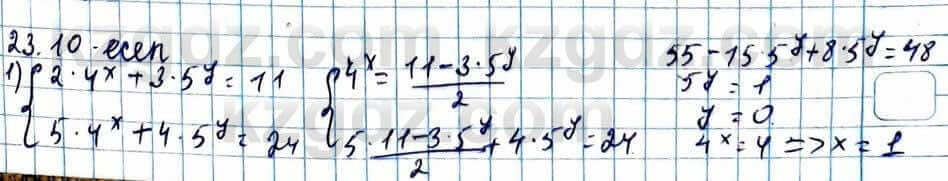 23.10-есеп
1) { 2·4^x + 3·5^y = 11
5·4^x + 4·5^y = 24
{ 4^x = (11-3·5^y)/2
5·(11-3·5^y)/2 + 4·5^y = 24
55-15·5^y+8·5^y=48
5^y = 1
y = 0
4^x = 4 => x = 1
kzgdz.com